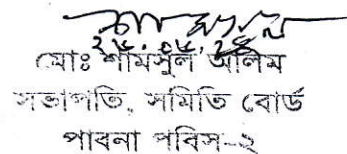 মোঃ শামসুল আলিম
সভাপতি, সমিতি বোর্ড
পাবনা পবিস-২